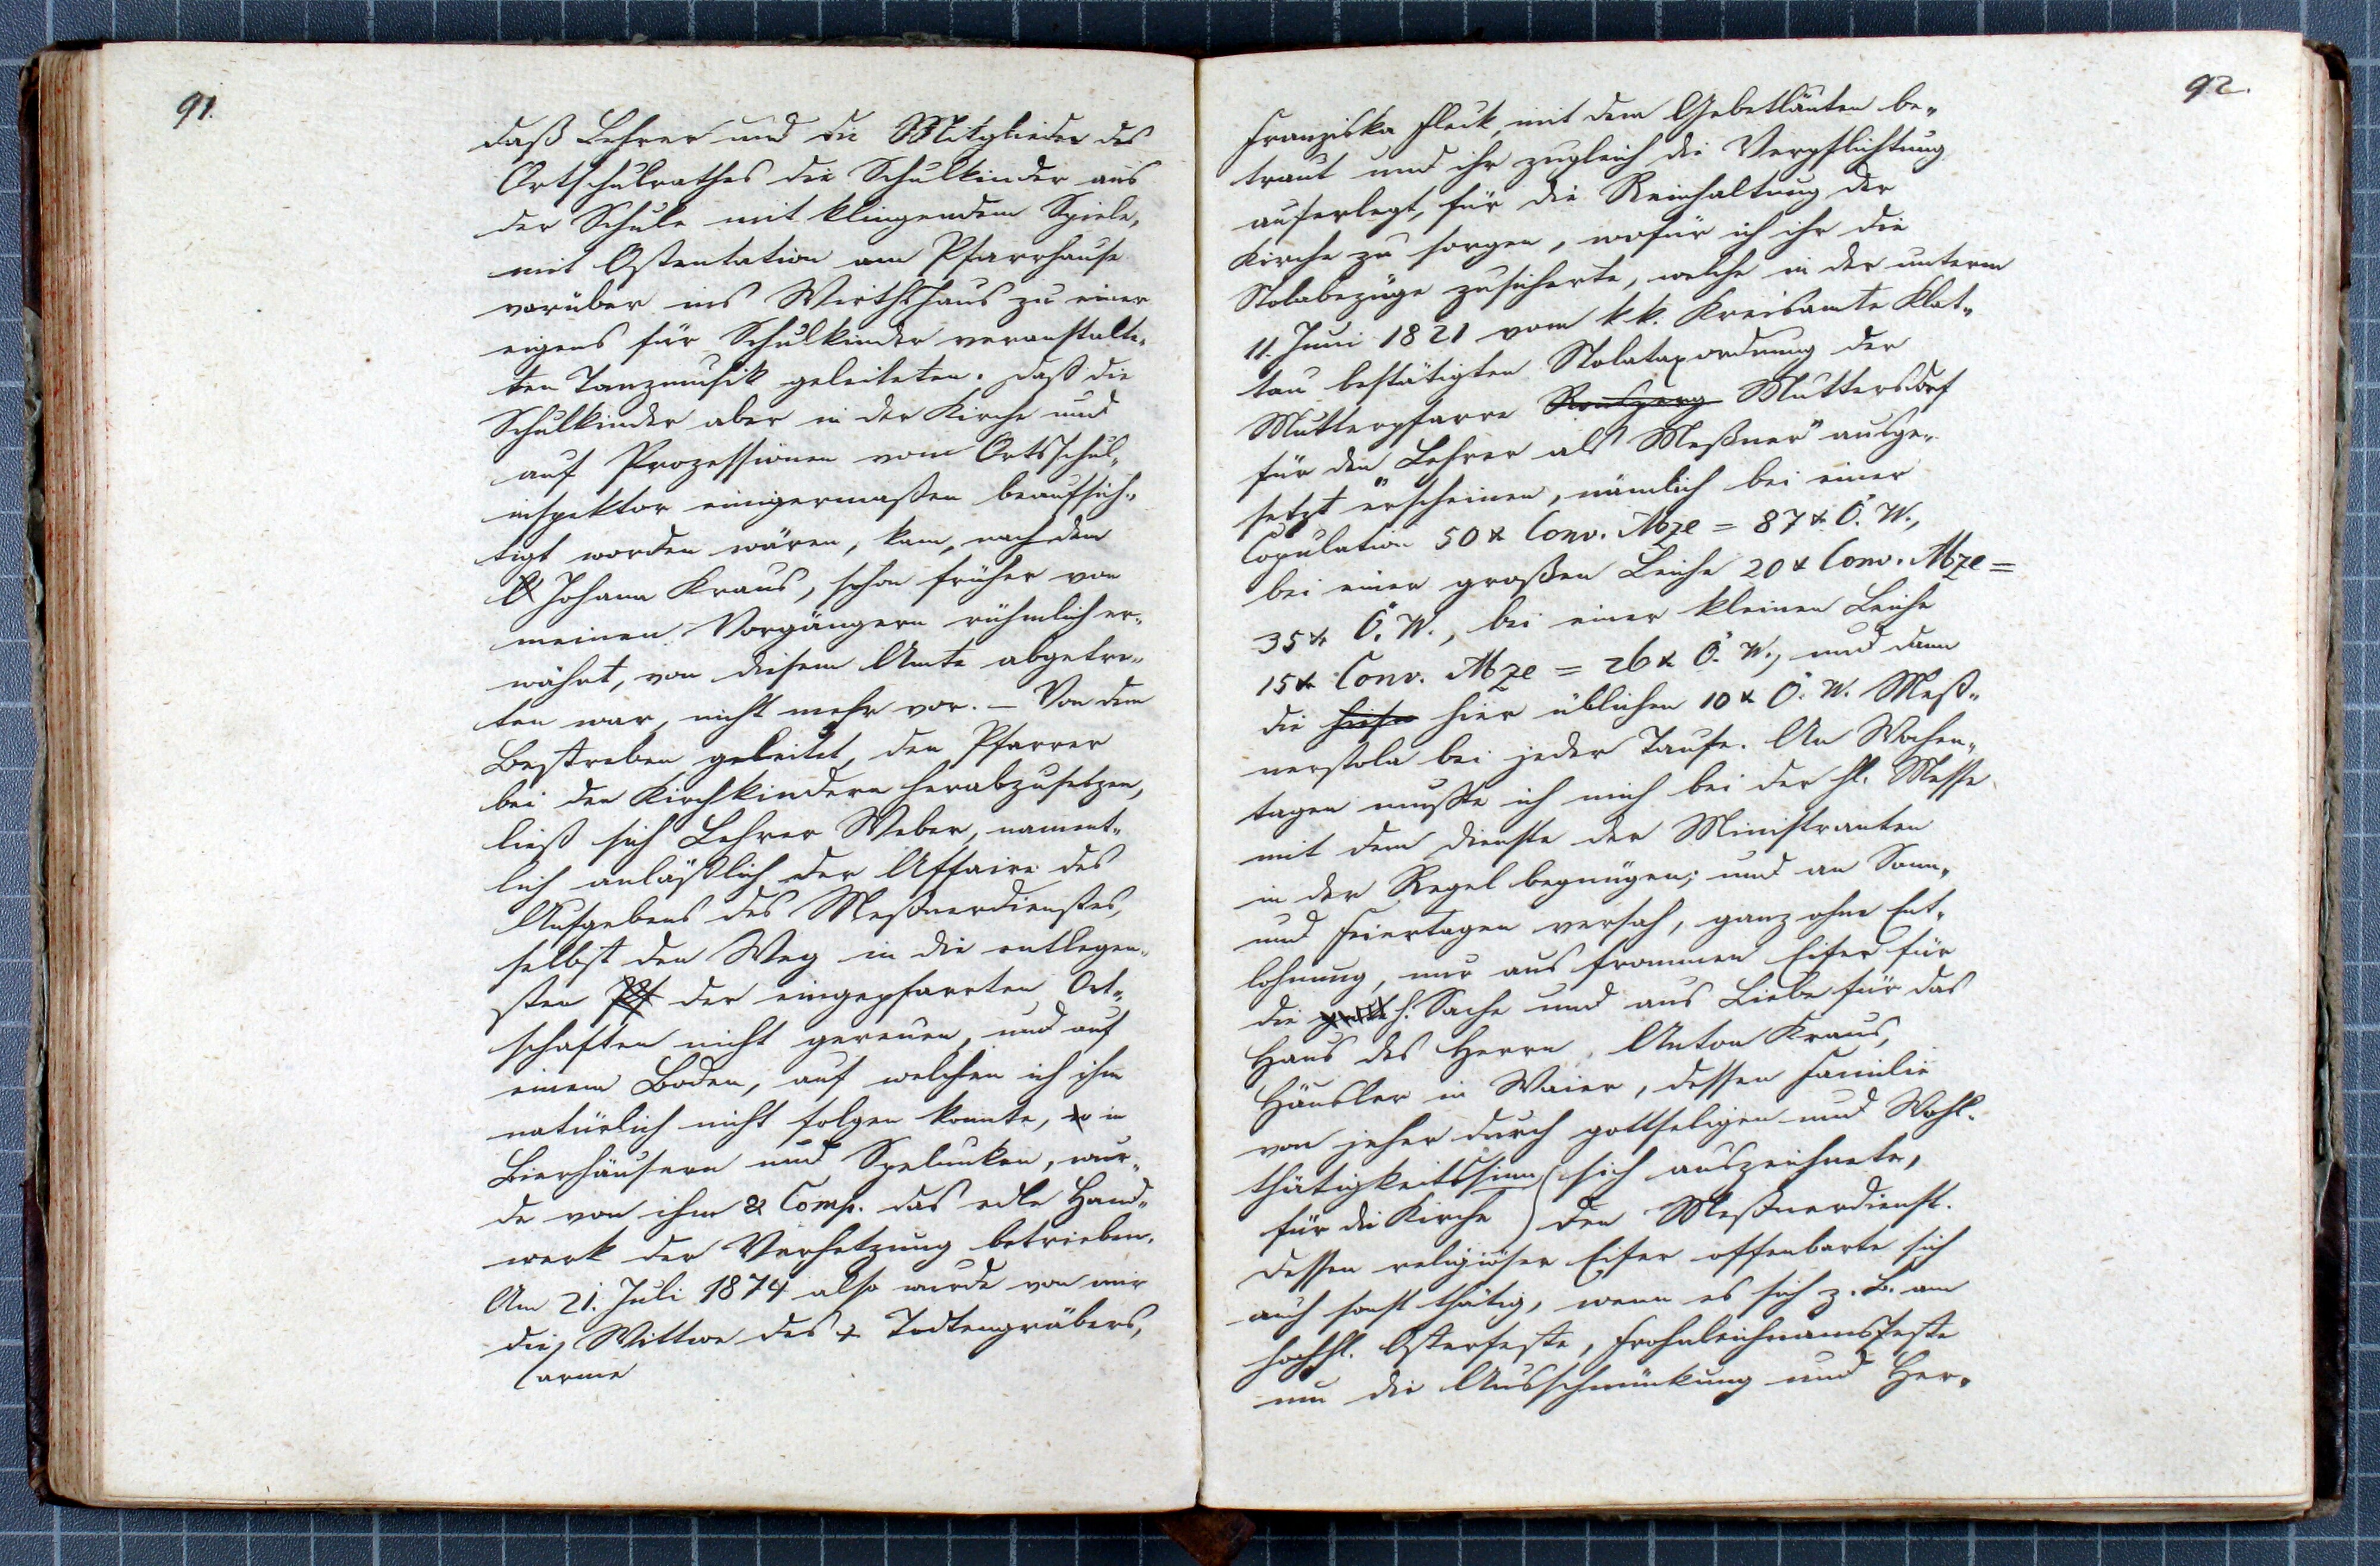 91.
daß Lehrer und die Mitglieder des
Ortschulrathes die Schulkinder aus
der Schule mit klingendem Spiele,
mit Ostentation am Pfarrhause
vorüber ins Wirthshaus zu einer
eigens für Schulkinder veranstalte„
ten Tanzmusik geleiteten. Daß die
Schulkinder aber in der Kirche und
auf Prozessionen vom Ortsschul„
inspektor einigermaßen beaufsich„
tigt worden wären, kam, nachdem
Johann Kraus, schon früher von
meinen Vorgängern rühmlich er„
wähnt, von diesem Amte abgetre„
ten war, nicht mehr vor. – Von dem
Bestreben geleitet, den Pfarrer
bei den Kirchkindern herabzusetzen,
ließ sich Lehrer Weber, nament„
lich anläßlich der Affaire des
Aufgebens des Meßnerdienstes,
selbst den Weg in die entlegen„
sten der eingepfarrten Ort„
schaften nicht gereuen, und auf
einem Boden, auf welchen ich ihm
natürlich nicht folgen konnte, in
Bierhäusern und Spelunken, wur„
de von ihm & Comp. das edle Hand„
werk der Verhetzung betrieben.
Am 21. Juli 1874 also wurde von mir
die Wittwe des + Todtengräbers,
(arme
92.
Franziska Fleck, mit dem Gebetläuten be„
traut und ihr zugleich die Verpflichtung
auferlegt, für die Reinhaltung der
Kirche zu sorgen, wofür ich ihr die
Stolabezüge zusicherte, welche in der unterm
11. Juni 1821 vom k.k. Kreisamte Klat„
tau bestätigten Stolataxordnung der
Mutterpfarre Ronsperg Muttersdorf
für den „Lehrer als Meßner" ausge„
setzt erscheinen, nämlich bei einer
Copulation 50 x Conv. Mze = 87 x Ö. W.,
bei einer großen Leiche 20 x Conv. Mze =
35 x Ö. W., bei einer kleinen Leiche
15 x Conv. Mze = 26 x Ö. W., und dann
die hier üblichen 10 x Ö. W. Meß„
nerstola bei jeder Taufe. An Wochen„
tagen mußte ich mich bei der hl. Messe
mit dem Dienste der Ministranten
in der Regel begnügen; und an Sonn„
und Feiertagen versah, ganz ohne Ent„
lohnung, nur aus frommen Eifer für
die h. Sache und aus Liebe für das
Haus des Herrn, Anton Kraus,
Häusler in Waier, dessen Familie
von jeher durch gottseligen und Wohl„
thätigkeitssinn (sich auszeichnete,
für die Kirche) den Meßnerdienst.
Dessen religiöser Eifer offenbarte sich
auch sonst thätig, wenn es sich z. B. am
hochhl. Osterfeste, Frohnleichnamsfeste
um die Ausschmückung und Her„